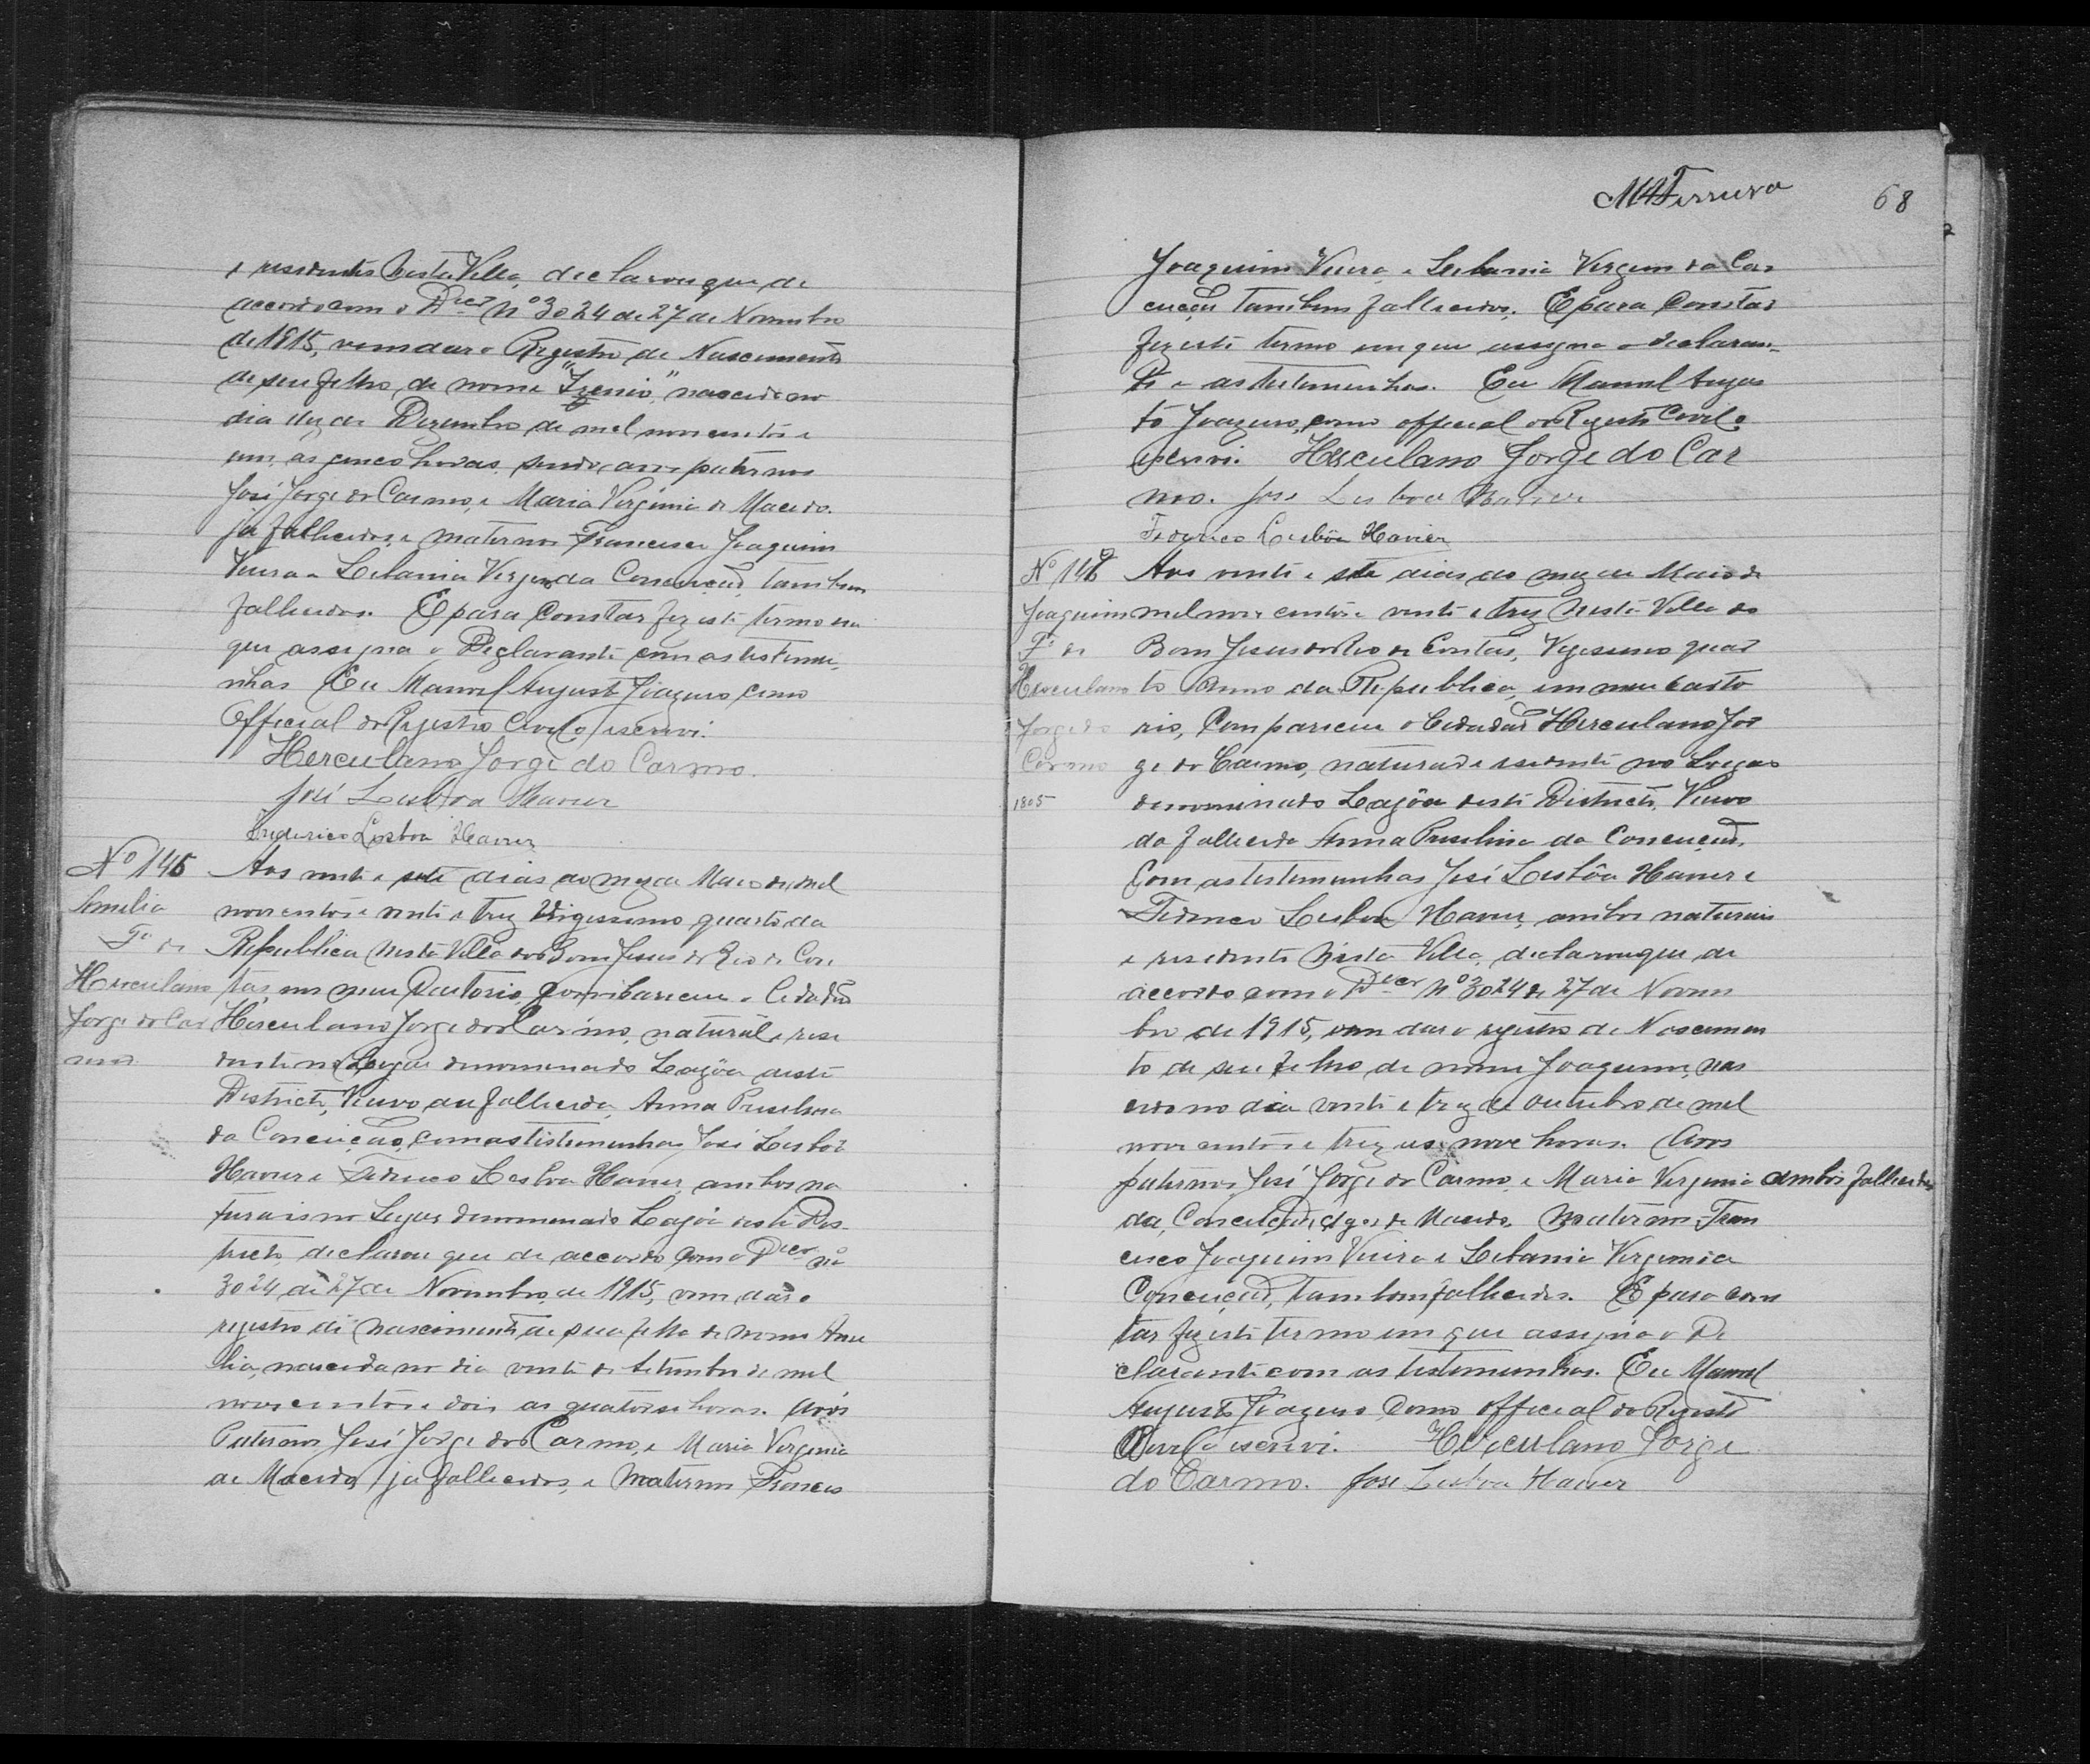 e residentes nesta Villa, declarou que de
accordo com o Decr nº 3024 de 27 de Novembro
de 1915, vem dar o Registro de Nascimento
de seu filho de nome "Izenio," nascido no
dia dez de Dezembro de mil novecentos e
um, as cinco horas, sendo avos paternos
José Jorge do Carmo, e Maria Virginia de Macedo.
ja fallecidos, e maternos Francisco Joaquim
Vieira e Libania Virgem da Conceição, tambem
fallecidos. E para Constar fiz este termo em
que assigna o Declarante com as testemu-
nhas Eu Manoel Augusto Joazeiro como
Official do Registro Civil o escrevi.
Herculano Jorge do Carmo.
José Lisbôa Xavier
Frederico Lisboa Xavier
Nº 146
Amelia
Fª de
Herculano
Jorge do Car
mo.
Aos vinte e sete dias do mez de Maio de mil
novecentos e vinte e trez Vigessimo quarto da
Republica nesta Villa do Bom Jesus do Rio de Con
tas, em meu Cartorio, Compareceu o Cidadão
Herculano Jorge do Carmo, natural e resi
dente no Lugar denominado Lagôa deste
Districto, Viuvo da fallecida, Anna Purulina
da Conceição, com as testemunhas José Lisbôa
Xavier e Federico Lisboa Xavier, ambos na
turais no Lugar denominado Lagôa deste Dis-
tricto, declarou que de accordo com o Decr nº
3024, de 27 de Novembro, de 1915, vem dar o
registro de nascimento de sua filha de nome Ame
lia, nascida no dia vinte de Setembro de mil
novecentos e dois as quatorse horas. Avós
Paternos José Jorge do Carmo, e Maria Virginia
de Macedo, ja fallecidos, e maternos Francis
68
Joaquim Vieira e Libania Virgem da Con
ceição tambem fallecidos. E para Constar
fiz este termo em que assigna o declaran-
te e as testemunhas. Eu Manoel Augus
to Joazeiro, como official do Registo Civil o
escrevi. Herculano Jorge do Car
mo. José Lisboa Xavier
Federico Lisbôa Xavier
Joaquim
Fº de
Herculano
Jorge do
Carmo
1805
Aos vinte e sete dias do mez de Maio de
mil nove centos e vinte e trez nesta Villa do
Bom Jesus do Rio de Contas, Vigessimo quar
to Anno da Republica, em meu Carto
rio, Compareceu o Cidadão Herculano Jor
ge do Carmo, natural e residente no Lugar
denominado Lagôa deste Districto, Viuvo
da fallecida Anna Purulina da Conceição,
Com as testemunhas José Lisbôa Xavier e
Federico Lisboa Xavier, ambos naturais
e residente nesta Villa, declarou que de
accordo com o Decr nº 3024 de 27 de Novem
bro de 1915, vem dar o registro de Nascimen
to de seu filho de nome Joaquim, nas
cido no dia vinte e trez de outubro de mil
nove centos e trez as nove horas. Avos
paternos, José Jorge do Carmo, e Maria Virginia ambos fallecidos
da, Conceição, de Macedo. Maternos Fran
cisco Joaquim Vieira e Libania Virgem da
Conceição, tambem fallecidos. E para cons
tar fiz este termo em que assigna o De
clarante com as testemunhas. Eu Manoel
Augusto Joazeiro Como Official do Registo
Civil o escrevi. Herculano Jorge
do Carmo. José Lisboa Xavier